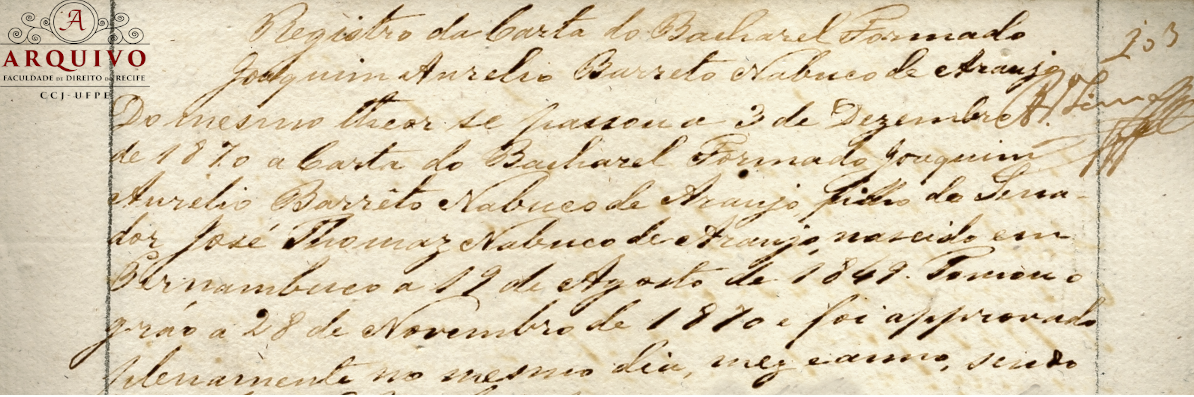 A
ARQUIVO
FACULDADE DE DIREITO DO RECIFE
CCJ-UFPE
103
Registro da Carta do Bacharel Formado
Joaquim Aurelio Barreto Nabuco de Araujo
Do mesmo theor se passou a 3 de Dezembro
de 1870 a Carta do Bacharel Formado Joaquim
Aurelio Barrêto Nabuco de Araujo, filho do Sena-
dor José Thomaz Nabuco de Araujo, nascido em
Pernambuco a 19 de Agosto de 1849. Tomou o
gráo a 28 de Novembro de 1870 e foi approvado
plenamente no mesmo dia, mez e anno, sendo